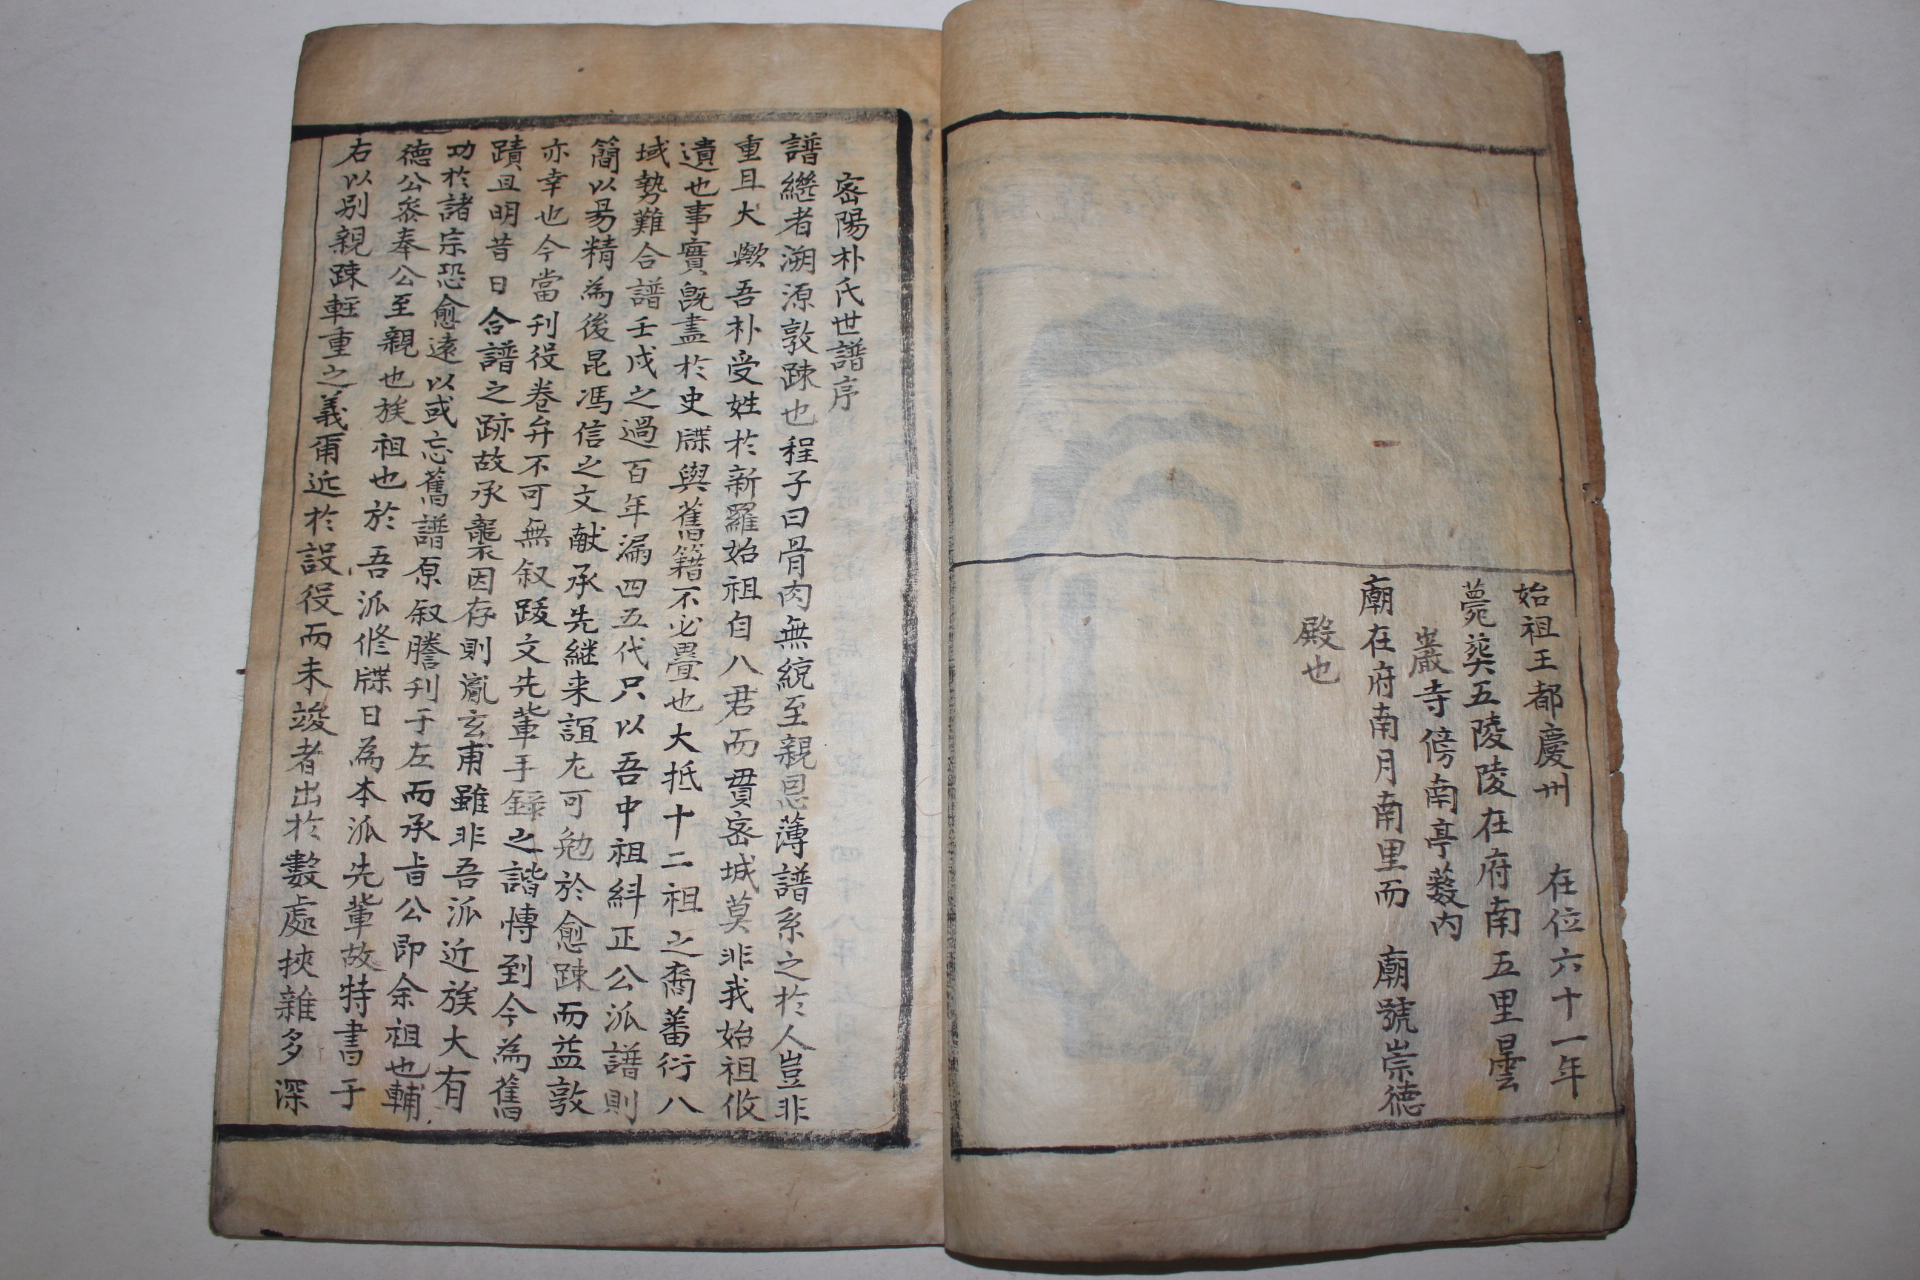 始祖王都慶州　在位六十一年
薨葬五陵陵在府南五里曇
巖寺傍南亭薮内
廟在府南月南里而　廟號崇德
殿也
密陽朴氏世譜序
譜繼者溯源敦踈也程子曰骨肉無統至親恩薄譜系之於人豈非
重且大歟吾朴受姓於新羅始祖自八君而貫密城莫非我始祖攸
遺也事實旣盡於史牒與舊籍不必疊也大抵十二祖之裔蕃衍八
域勢難合譜壬戌之過百年漏四五代只以吾中祖糾正公派譜則
簡以昜精為後昆馮信之文献承先継来誼尤可勉於愈踈而益敦
亦幸也今當刊役卷弁不可無叙跋文先軰手錄之諧愽到今為舊
蹟且明昔日合譜之跡故承襲因存則胤玄甫雖非吾派近族大有
功於諸宗恐愈遠以或忘舊譜原叙謄刊于左而承旨公即余祖也輔
德公叅奉公至親也族祖也於吾派修牒日為本派先軰故特書于
右以别親踈輊重之義甭近於設役而未竣者出於數處挾雜多深